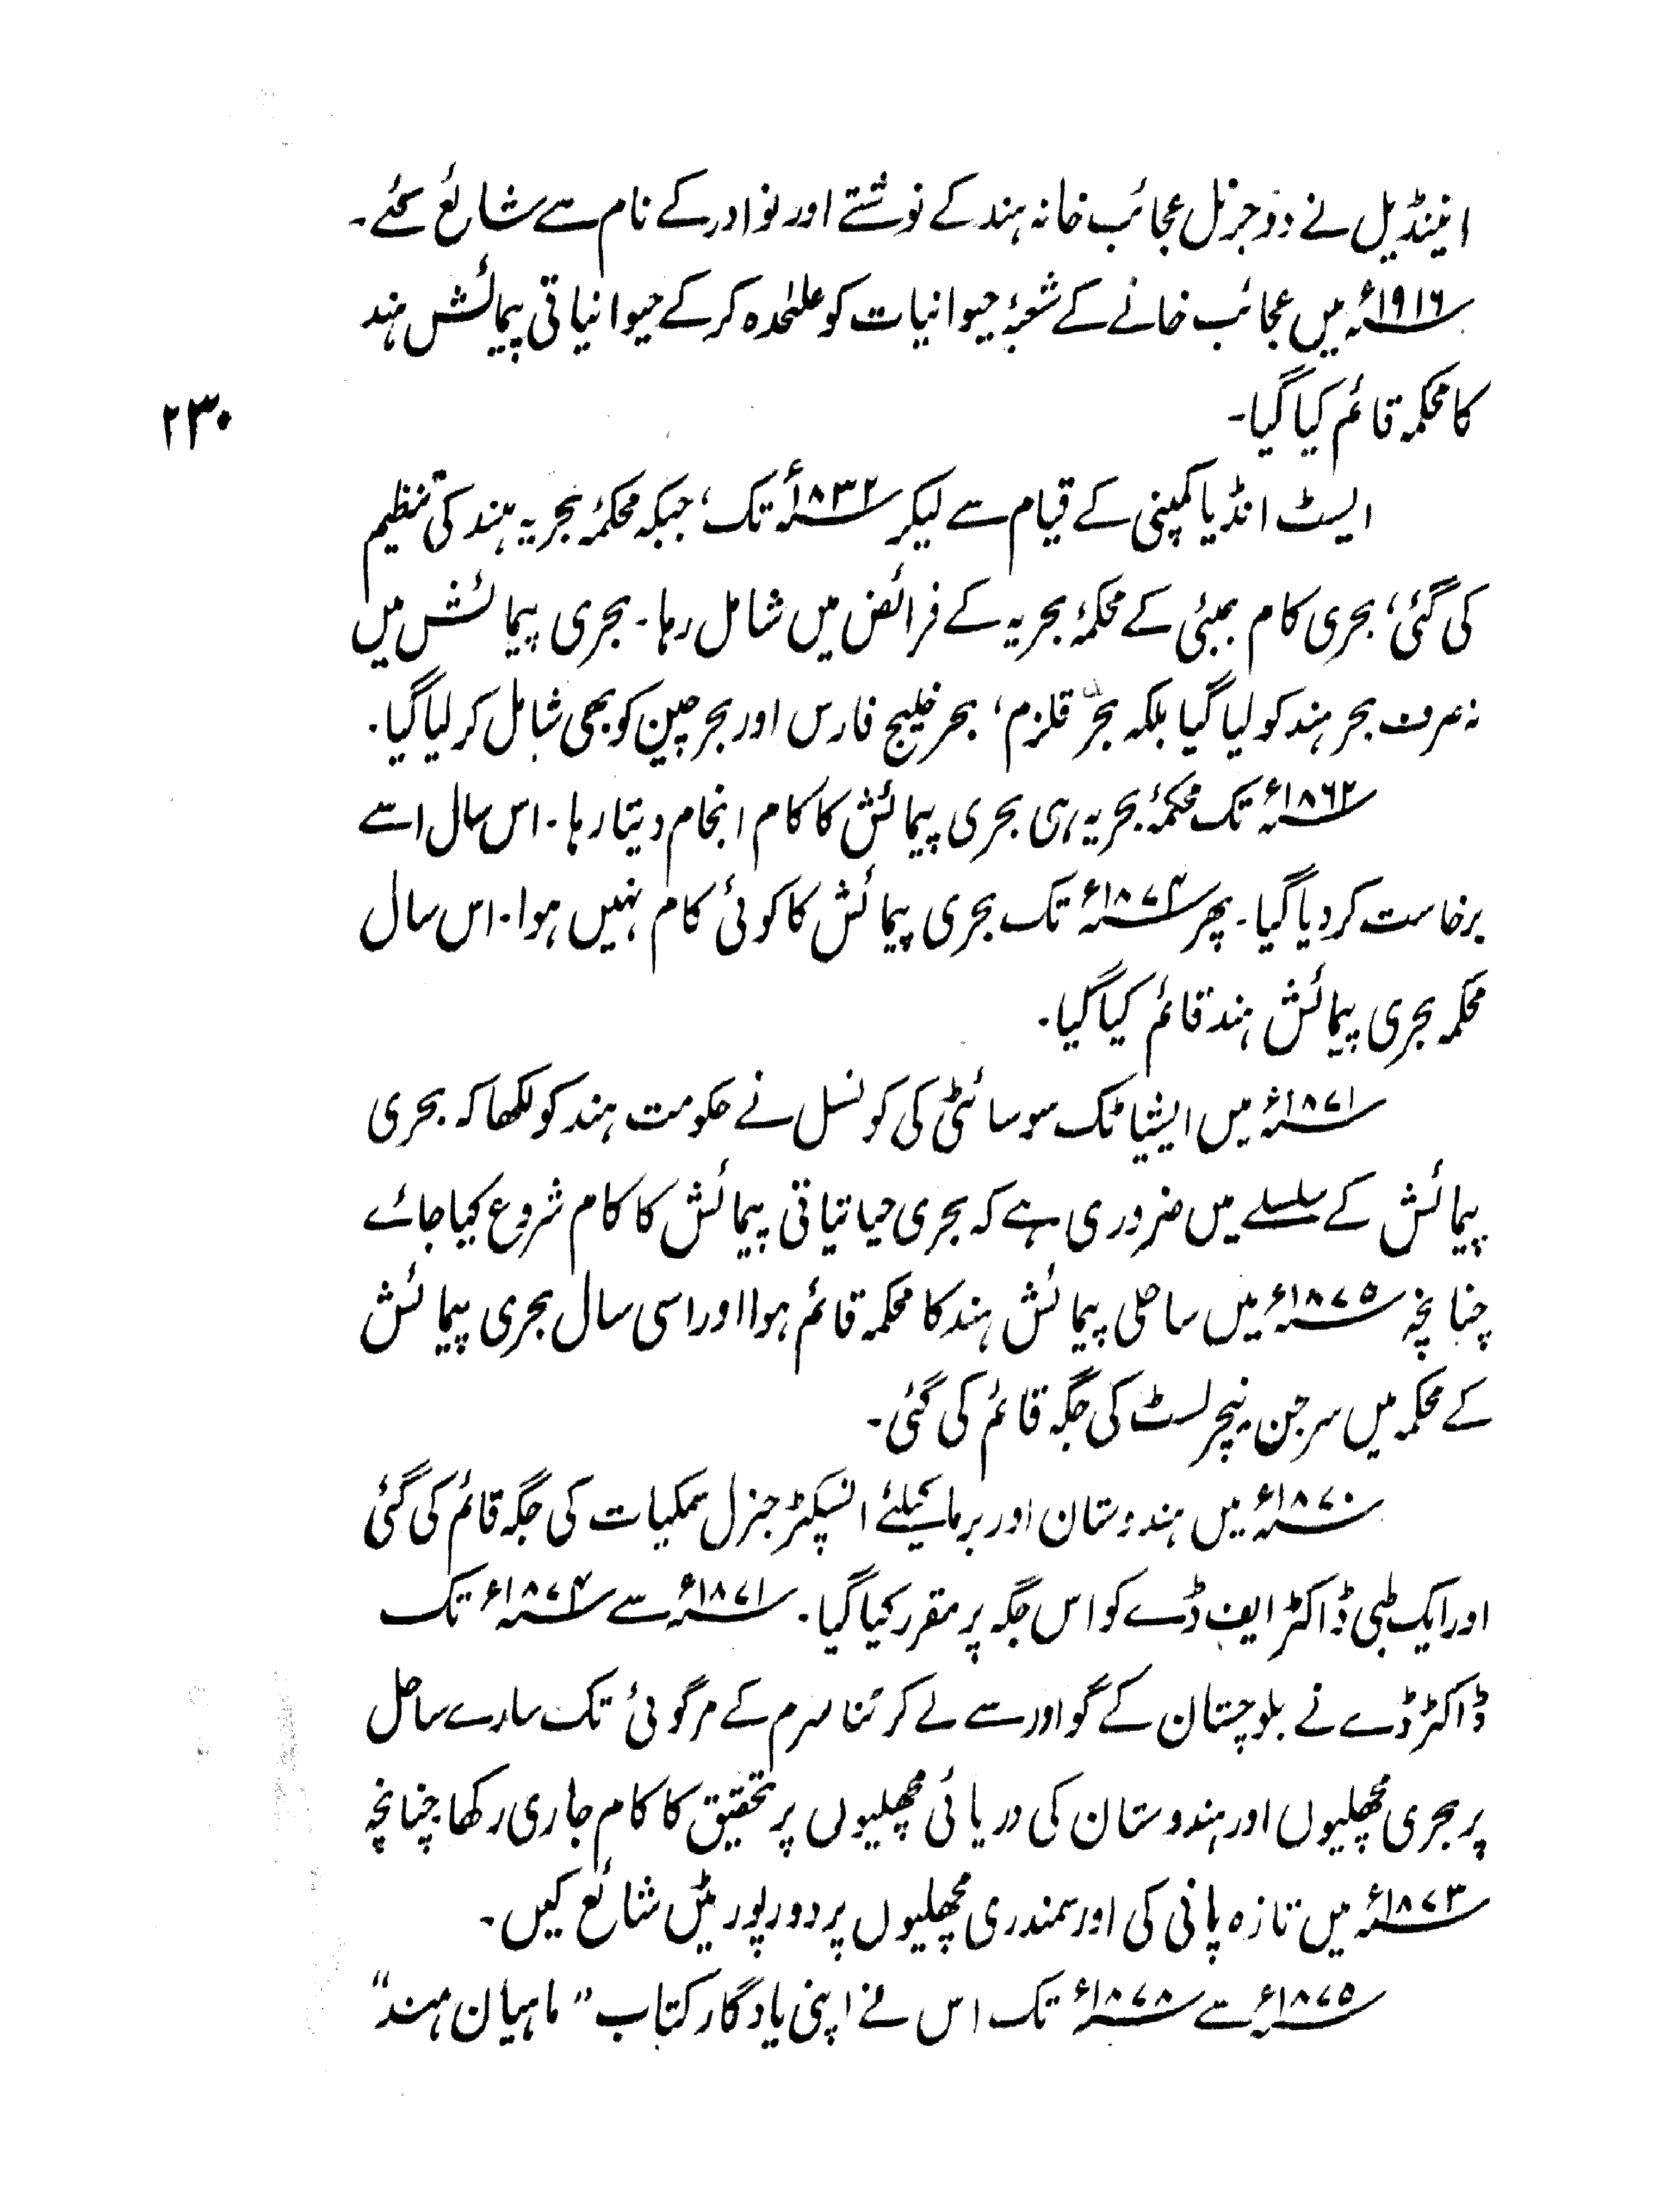 اینڈیل نے دو جرنل عجائب خانہ ہند کے نوشتے اور نوادر کے نام سے شائع کئے۔
۱۹۱۶ء میں عجائب خانے کے شعبۂ حیوانیات کو علٰحدہ کر کے حیوانیاتی پیمائش ہند
کا محکمہ قائم کیا گیا۔
۲۳۰
ایسٹ انڈیا کمپنی کے قیام سے لیکر ۱۸۳۲ء تک، جبکہ محکمۂ بحریہ ہند کی تنظیم
کی گئی، بحری کام بمبئی کے محکمۂ بحریہ کے فرائض میں شامل رہا۔ بحری پیمائش میں
نہ صرف بحر ہند کو لیا گیا بلکہ بحر قلزم، بحر خلیج فارس اور بحر چین کو بھی شامل کر لیا گیا۔
۱۸۶۲ء تک محکمۂ بحریہ ہی بحری پیمائش کا کام انجام دیتا رہا۔ اس سال اسے
برخاست کر دیا گیا۔ پھر ۱۸۷۴ء تک بحری پیمائش کا کوئی کام نہیں ہوا۔ اس سال
محکمہ بحری پیمائش ہند قائم کیا گیا۔
۱۸۷۱ء میں ایشیاٹک سوسائٹی کی کونسل نے حکومت ہند کو لکھا کہ بحری
پیمائش کے سلسلے میں ضروری ہے کہ بحری حیاتیاتی پیمائش کا کام شروع کیا جائے
چنانچہ ۱۸۷۵ء میں ساحلی پیمائش ہند کا محکمہ قائم ہوا اور اسی سال بحری پیمائش
کے محکمہ میں سرجن نیچرلسٹ کی جگہ قائم کی گئی۔
۱۸۷۰ء میں ہندوستان اور برما کیلئے انسپکٹر جنرل سمکیات کی جگہ قائم کی گئی
اور ایک طبی ڈاکٹر ایف ڈے کو اس جگہ پر مقرر کیا گیا۔ ۱۸۷۱ء سے ۱۸۷۴ء تک
ڈاکٹر ڈے نے بلوچستان کے گوادر سے لے کر تناسرم کے مرگوئی تک سارے ساحل
پر بحری مچھلیوں اور ہندوستان کی دریائی مچھلیوں پر تحقیق کا کام جاری رکھا چنانچہ
۱۸۷۳ء میں تازہ پانی کی اور سمندری مچھلیوں پر دو رپورٹیں شائع کیں۔
۱۸۷۵ء سے ۱۸۷۸ء تک اس نے اپنی یادگار کتاب "ماہیان ہند"